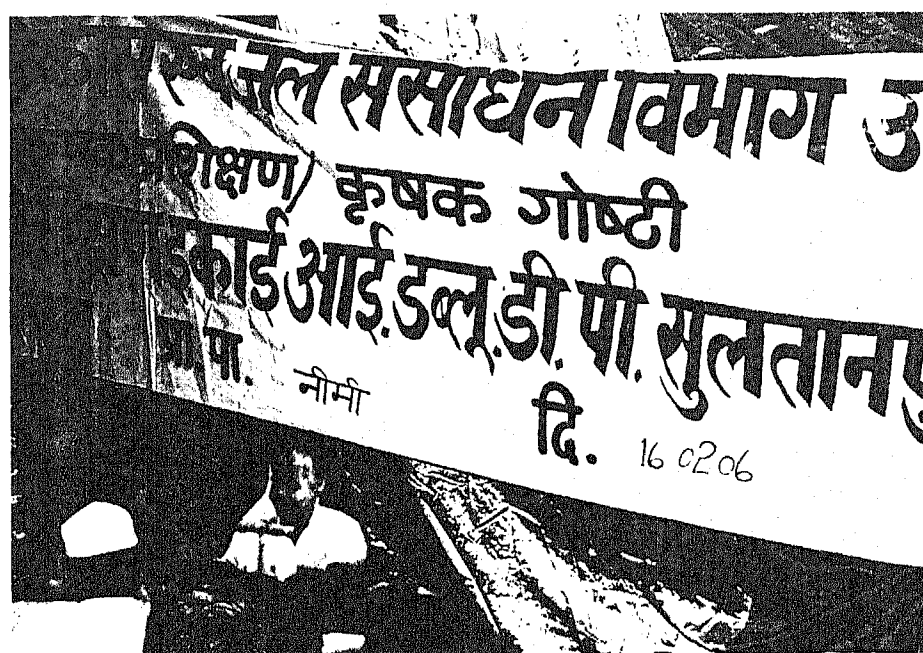 जल संसाधन विभाग उ
प्रशिक्षण/ कृषक गोष्टी
इकाई आई.डब्लू.डी.पी. सुलतानपु
नीमी दि. 16 02 06